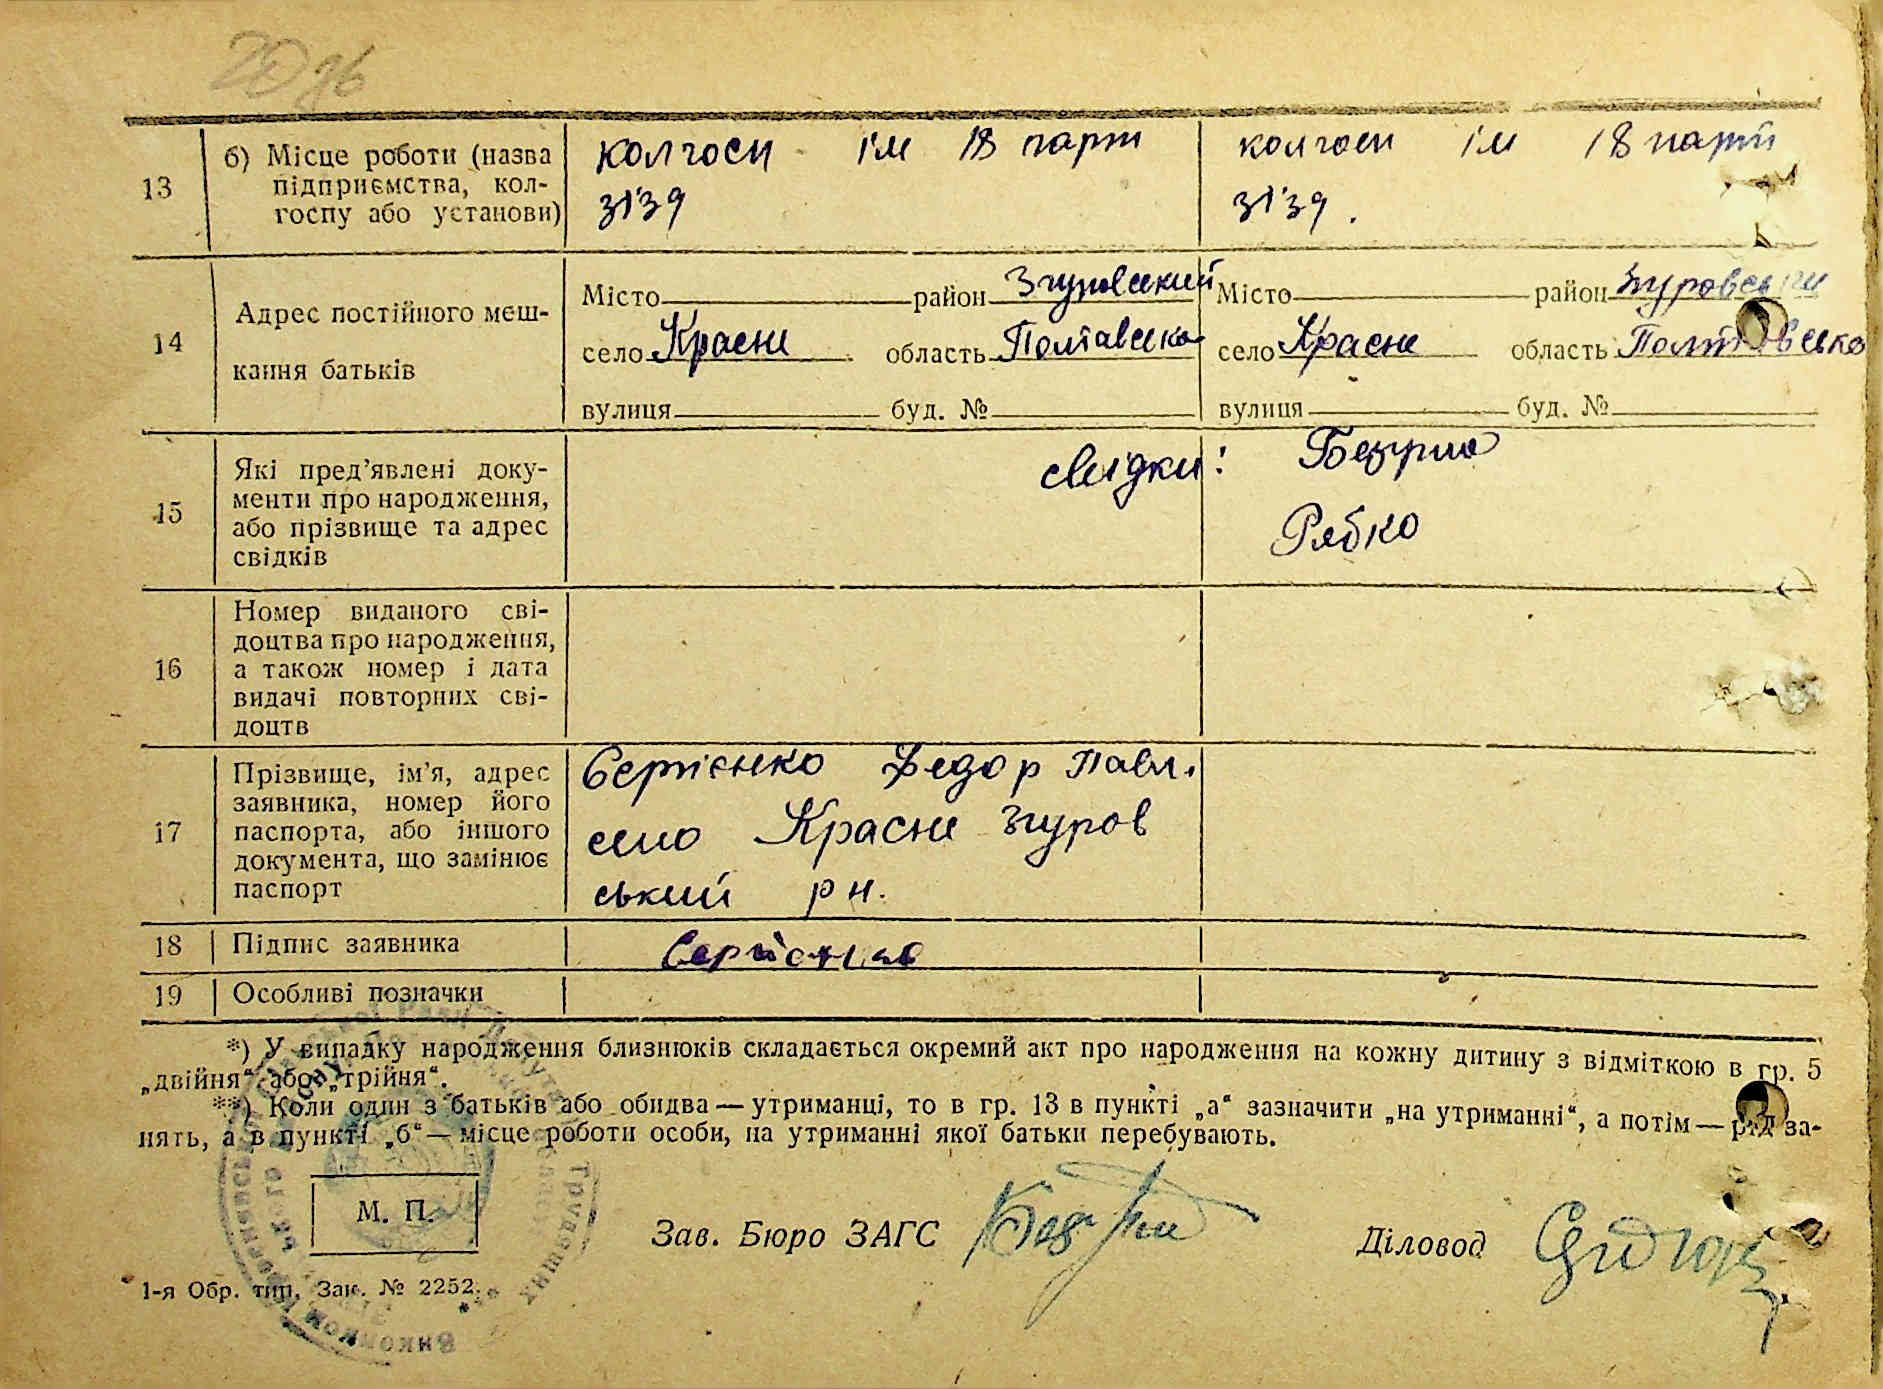 13 б) Місце роботи (назва підприємства, кол-госпу або установи)
колгосп ім 18 парт
зїзд
колгосп ім 18 парт
зїзд.
14 Адрес постійного меш-
кання батьків
Місто район Згуровський
село Красне область Полтавська
вулиця буд. №
Місто район Згуровськи
село Красне область Полтавська
вулиця буд. №
15 Які пред’явлені доку-
менти про народження,
або прізвище та адрес
свідків
свідки:
Рябко
16 Номер виданого сві-
доцтва про народження,
а також номер і дата
видачі повторних сві-
доцтв
17 Прізвище, ім’я, адрес
заявника, номер його
паспорта, або іншого
документа, що замінює
паспорт
Сергієнко Федор Павл.
село Красне Згуров
ський рн.
18 Підпис заявника
Сергієнко
19 Особливі позначки
*) У випадку народження близнюків складається окремий акт про народження на кожну дитину з відміткою в гр. 5
„двійня“ або „трійня“.
**) Коли один з батьків або обидва — утриманці, то в гр. 13 в пункті „а“ зазначити „на утриманні“, а потім — рід за-
нять, а в пункті „б“ — місце роботи особи, на утриманні якої батьки перебувають.
М. П.
Зав. Бюро ЗАГС
Діловод
1-я Обр. тип. Зак. № 2252.